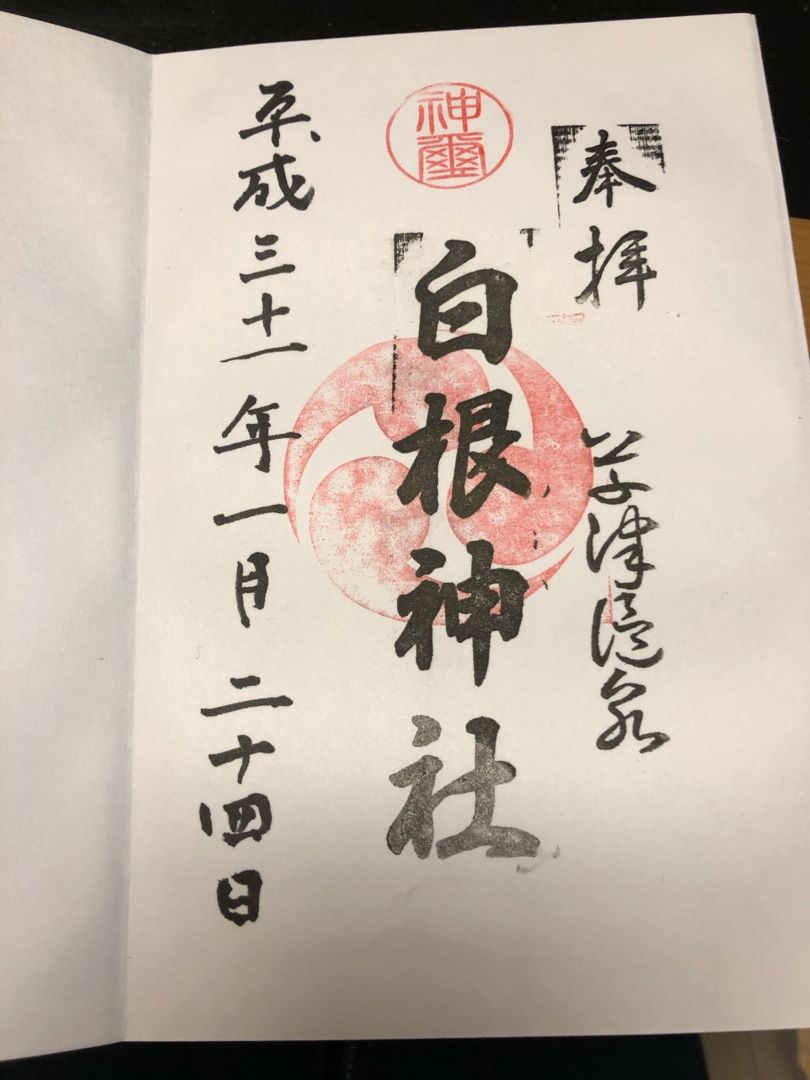 奉拝
草津温泉
神璽
白根神社
平成三十一年一月二十四日